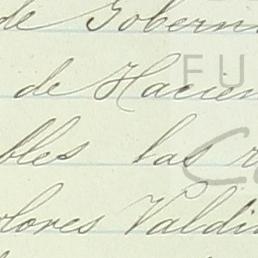 de Gobern
de Hacien
bles las r
olores Valdi